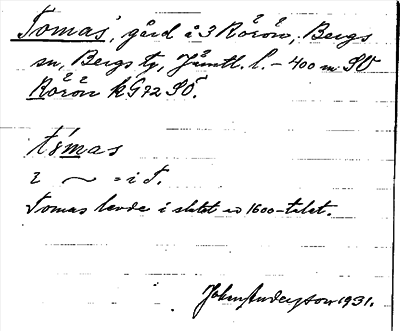 Tomas', gård å 3 Rörön, Bergs
sn, Bergs tg, Jämtl. l. – 400 m SV
Rörön k G 92 SÖ.
i ~ = i T.
Tomas levde i slutet av 1600-talet.
John Anderzon 1931.